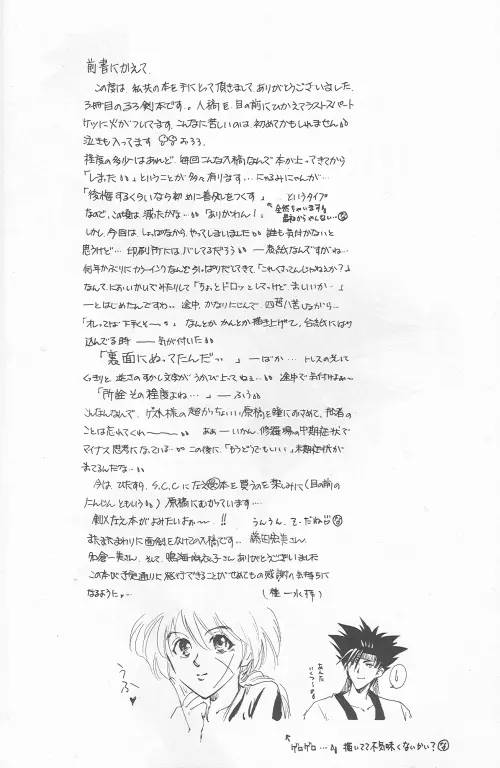 前書にかえて
この度は、私共の本を手にとって頂きまして、ありがとうございました。
3冊目のるろ剣本です。入稿を目の前にひかえてラストスパート
ケツに火がついてます。こんなに苦しいのは、初めてかもしれません
泣きも入ってます おろろ。
程度の多少はあれど、毎回こんな入稿なんで本が上ってきてから
「しまった」ということが多々有ります…にゃるみにゃんが…
「後悔するくらいなら初めに善処をつくす」というタイプ
なので、この頃は減ったかな…「ありがわん!」
全然ちがいます
しかし今回は、しょっぱなから、やってしまいました 誰も気付かないと
思うけど…印刷所にはバレてるだろう ─表紙なんですがね…
何年かぶりにカラーインクなんぞ引っぱりだしてきて「これくさってんじゃねェか?」
なんて、においかいでみたりして「ちょっとドロッとしてっけど、ましいか…」
─とはじめたんですわ。途中、かなりにじんで、四苦八苦しながら…
「オレってば下手くそー。」なんとか、かんとか描き上げて、台紙にはり
込んでる時 ─気が付いた
「裏面にぬってたんだっ。」─ばか…トレスの光にて
くっきりと、逆さのすかし文字がうかび上ってねェ… 途中で気付けよ〜
「所詮その程度よね…」─ふぅ
こんなんなんで、ゲスト様の超かっちょいい原稿を瞳におさめて、拙者の
ことは忘れてくれ〜 ああーいかん、修羅場の中期症状で
マイナス思考になっている…この後に、「もうどうでもいい」末期症状が
まってるんだな…
今は、ひたすら、S.C.Cに左之本を買うのを楽しみに(目の前の
にんじんともいう)原稿にむかっています…
剣×左之本がよみたいよぉ〜!! うんうん、て・だね
またまたまわりに面倒をかけての入稿です。藤田宏美さん
和倉一美さん、そして、鳴海麻衣子さんありがとうございました
この本が予定通りに発行できることがせめてもの感謝の気持ちに
なるように。
うふ♥
ゲロゲロ… 描いてて不気味くないかい?